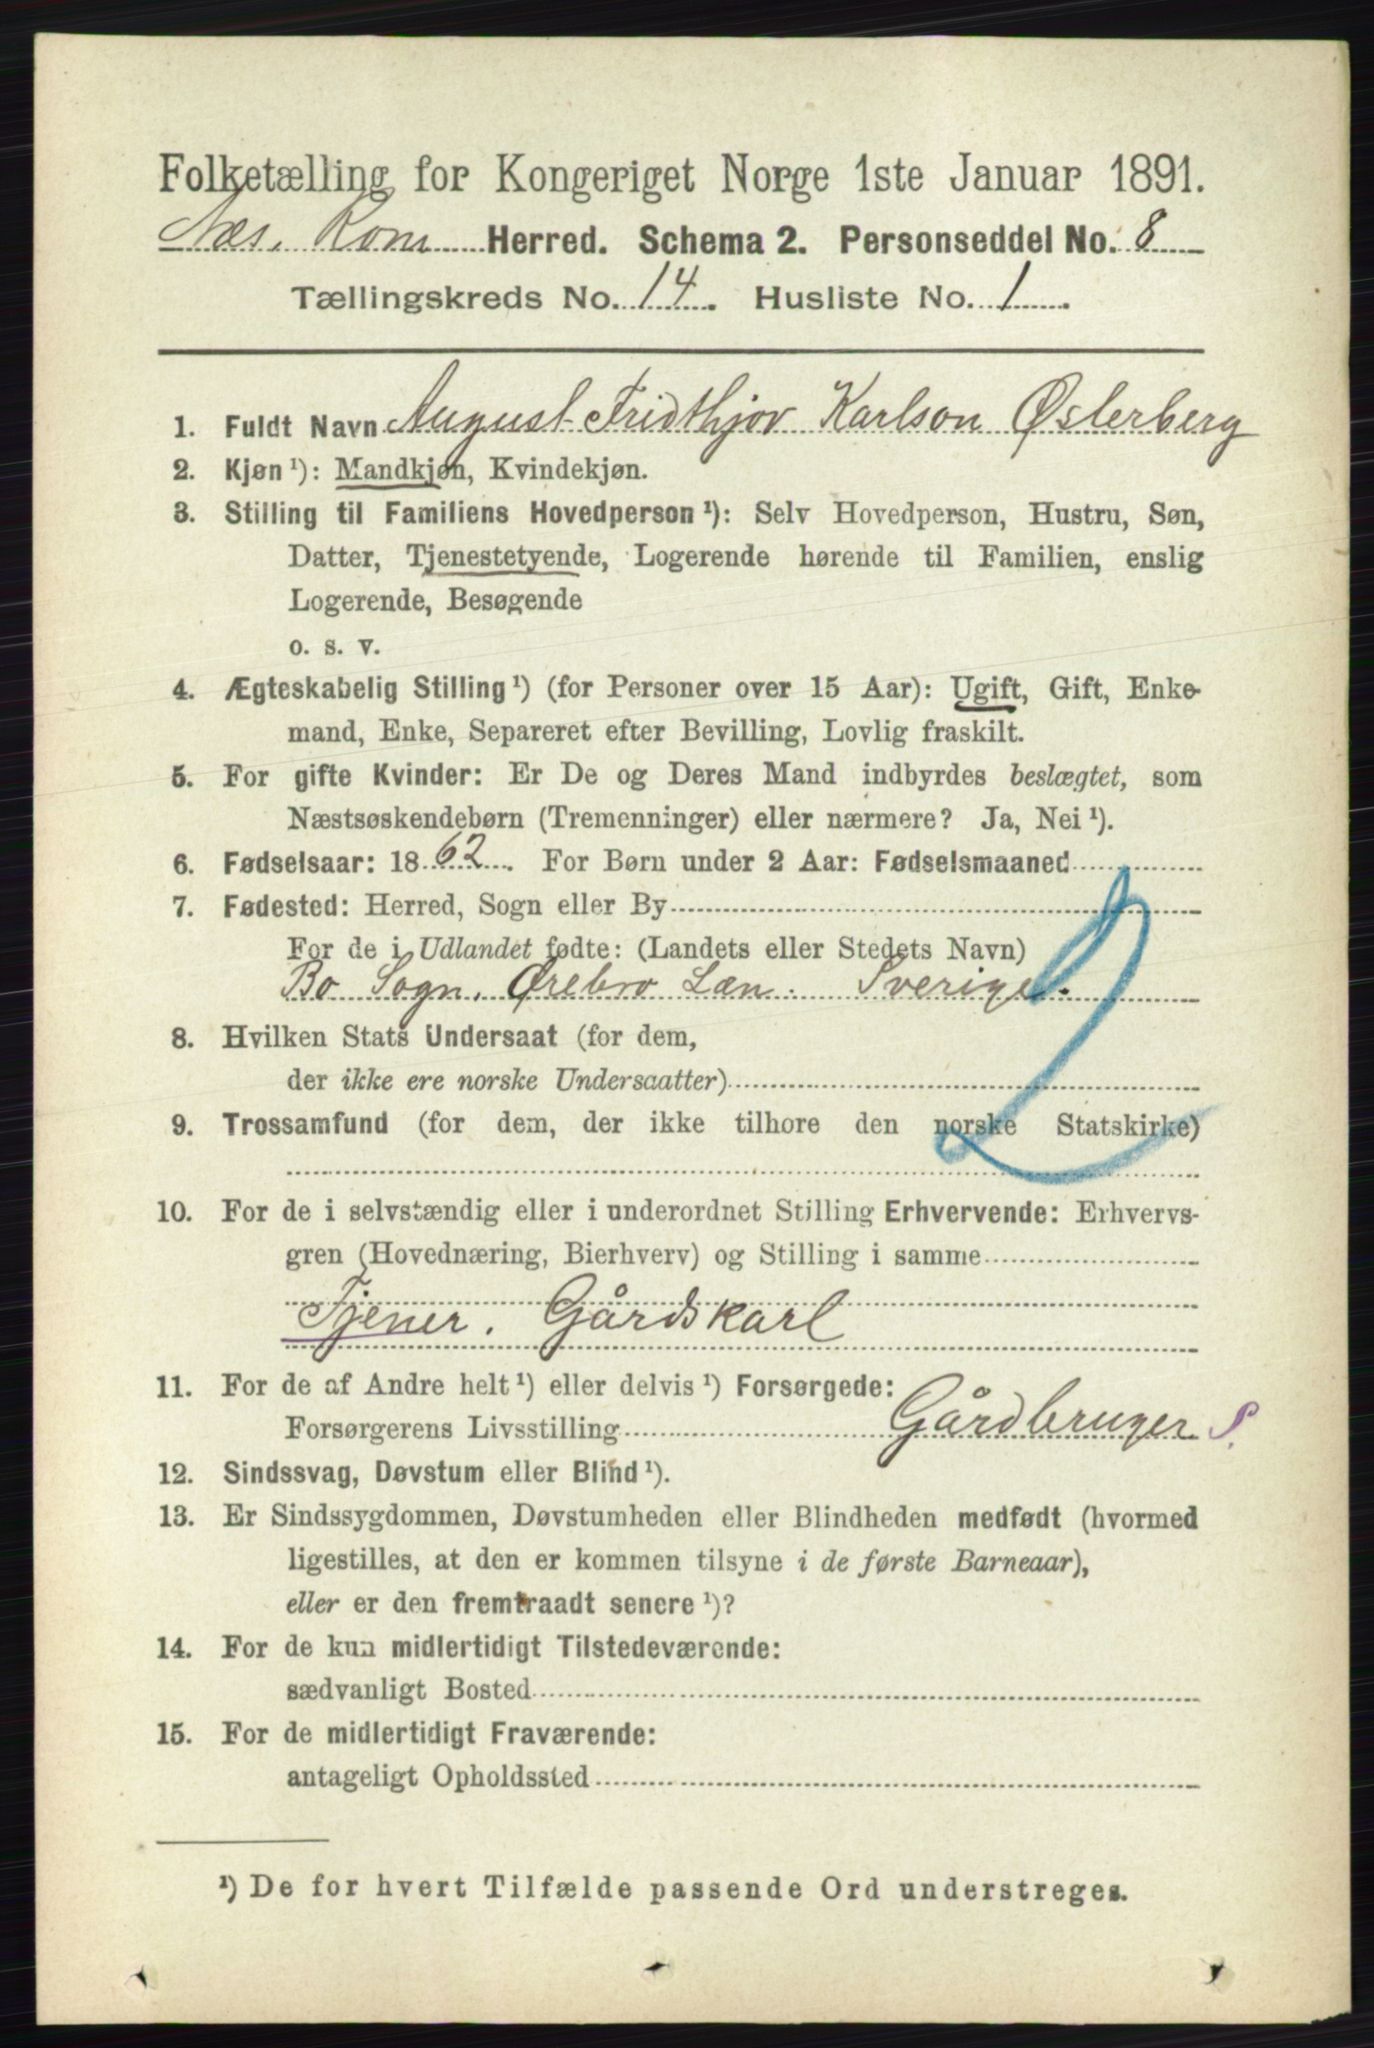 Folketælling for Kongeriget Norge 1ste Januar 1891.
Næs. Rom Herred. Schema 2. Personseddel No. 8
Tællingskreds No. 14. Husliste No. 1.
1. Fuldt Navn August Fridthjov Karlson Østerberg
2. Kjøn ¹): Mandkjøn, Kvindekjøn.
3. Stilling til Familiens Hovedperson ¹): Selv Hovedperson, Hustru, Søn,
Datter, Tjenestetyende, Logerende hørende til Familien, enslig
Logerende, Besøgende
o. s. v.
4. Ægteskabelig Stilling ¹) (for Personer over 15 Aar): Ugift, Gift, Enke-
mand, Enke, Separeret efter Bevilling, Lovlig fraskilt.
5. For gifte Kvinder: Er De og Deres Mand indbyrdes beslægtet, som
Næstsøskendebørn (Tremenninger) eller nærmere? Ja, Nei ¹).
6. Fødselsaar: 1862. For Børn under 2 Aar: Fødselsmaaned
7. Fødested: Herred, Sogn eller By
For de i Udlandet fødte: (Landets eller Stedets Navn)
Bo Sogn, Ørebro Læn. Sverige.
8. Hvilken Stats Undersaat (for dem,
der ikke ere norske Undersaatter)
9. Trossamfund (for dem, der ikke tilhøre den norske Statskirke)
10. For de i selvstændig eller i underordnet Stilling Erhvervende: Erhvervs-
gren (Hovednæring, Bierhverv) og Stilling i samme
Tjener. Gårdskarl
11. For de af Andre helt ¹) eller delvis ¹) Forsørgede:
Forsørgerens Livsstilling Gårdbruger S.
12. Sindssvag, Døvstum eller Blind ¹).
13. Er Sindssygdommen, Døvstumheden eller Blindheden medfødt (hvormed
ligestilles, at den er kommen tilsyne i de første Barneaar),
eller er den fremtraadt senere ¹)?
14. For de kun midlertidigt Tilstedeværende:
sædvanligt Bosted
15. For de midlertidigt Fraværende:
antageligt Opholdssted
¹) De for hvert Tilfælde passende Ord understreges.